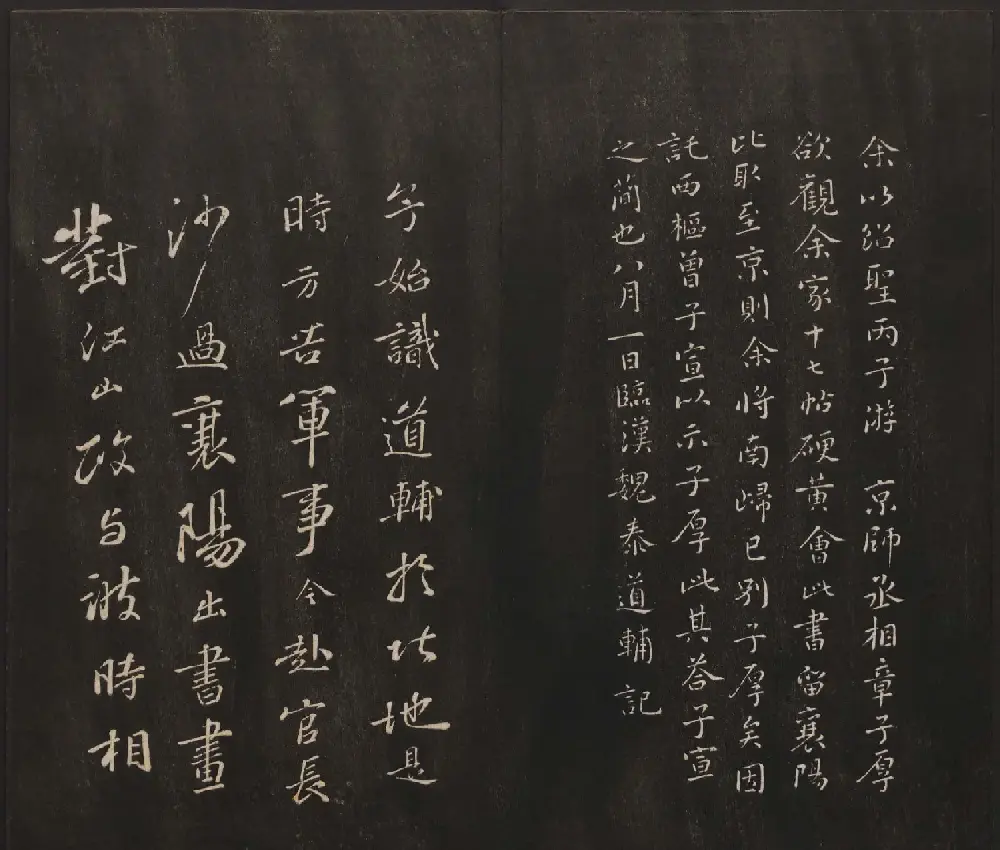 余以紹聖丙子游 京師丞相章子厚
欲觀余家十七帖硬黃會此書留襄陽
比取至京則余將南歸已別子厚矣因
託西樞曾子宣以示子厚此其荅子宣
之簡也八月一日臨漢魏泰道輔記
始識道輔於此地是
時方苦軍事今赴官長
沙過襄陽出書畫
對江山政与彼時相